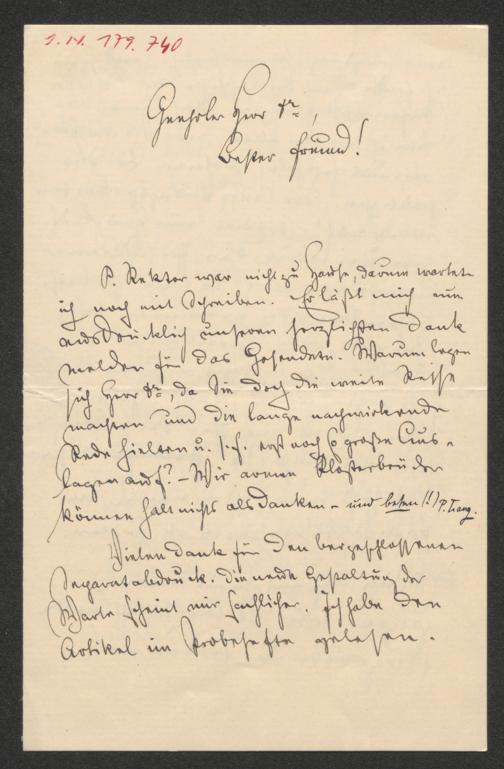 I. N. 179.740
Geehrter Herr Dr,
Bester Freund!
P. Rektor war nicht zu Hause, darum wartete
ich noch mit Schreiben. Er läßt mich nun
ausdrücklich unseren herzlichsten Dank
melden für das Gesendete. Warum legen
sich Herr Dr, da Sie doch die weite Reise
machten und die lange nachwirkende
Rede hielten u. s. f. erst noch so große Aus-
lagen auf? – Wir armen Klosterbrüder
können halt nichts als danken – und beten!!)
Vielen Dank für den beigeschlossenen
Separatabdruck. Die neue Gestaltung der
Warte scheint mir fachlicher. Ich habe den
Artikel im Probehefte gelesen.